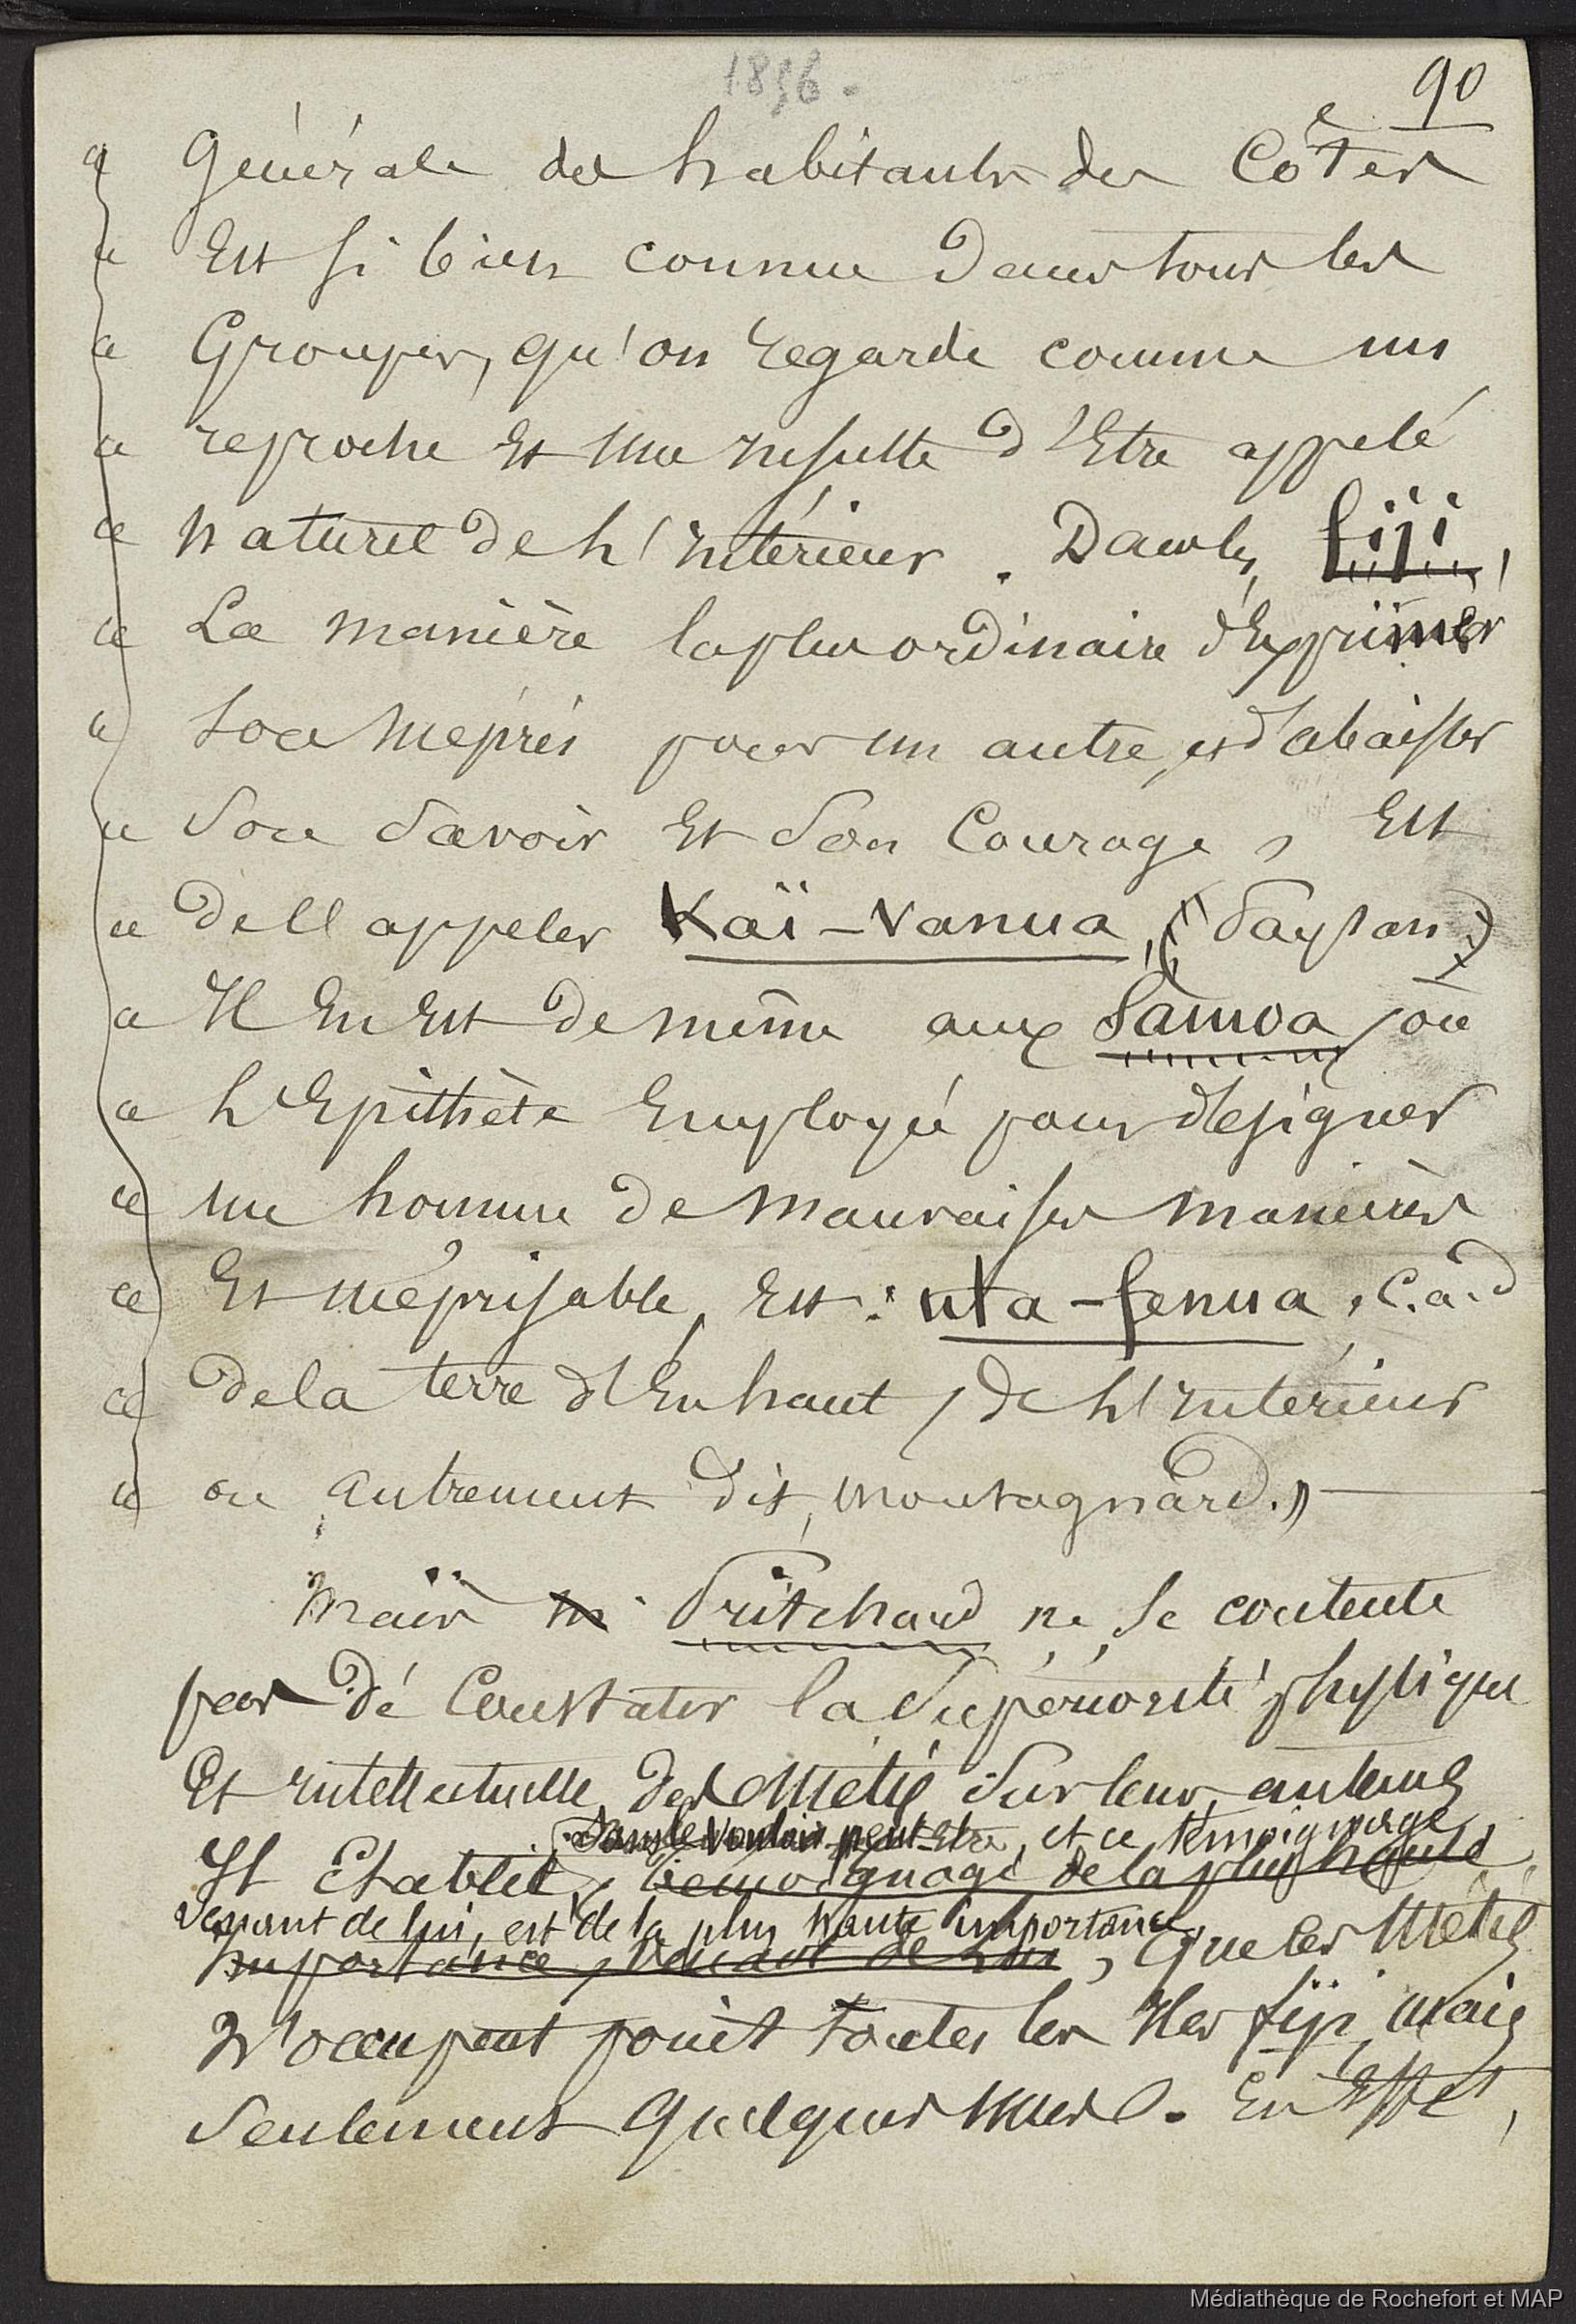 1856.
90
« Générale des habitants des Côtes
« Est si bien connue dans tous les
« Groupes, qu'on regarde comme un
« reproche Et une insulte d'Etre appelé
« naturel de l'intérieur. Dans les fiji,
« La manière la plus ordinaire d'Exprimer
« Son mépris pour un autre, et d'abaisser
« Son Savoir Et Son Courage, Est
« de ll appeler Kaï-Vanua, (Paysan)
« Il En Est de même aux Samoa, où
« L'Epithète Employée pour désigner
« un homme de mauvaises manières
« Et méprisable, Est : uta-fenua, c.a.d
« de la terre d'En haut, de L'intérieur
« ou autrement dit, montagnard. »
Mais M. Pritchard ne se contente
pas de Constater la Supériorité physique
Et intellectuelle des Métis Sur leurs auteurs
Sans le vouloir peut-etre, et ce témoignage,
Il Etablit, témoignage de la plus haute
venant de lui, est de la plus haute importance,
importance, venant de lui, que les Métis
N'occupent point toutes les Iles fiji, mais
Seulement Quelques unes. En Effet,
Médiathèque de Rochefort et MAP